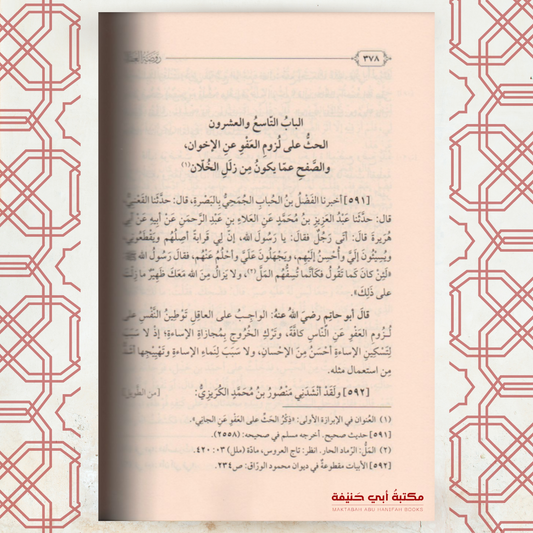 ٣٧٨
روضة العقلاء
البابُ التّاسعُ والعشرون
الحثُّ على لُزومِ العَفْوِ عنِ الإخوان،
والصَّفحِ عمّا يكونُ مِن زلَلِ الخُلّان(١)
[٥٩١] أخبرنا الفَضْلُ بنُ الحُبابِ الجُمَحِيُّ بالبَصْرةِ، قال: حدَّثَنا القَعْنَبي،
قال: حدَّثَنا عَبْدُ العَزيزِ بنُ مُحمَّدٍ عَنِ العَلاءِ بنِ عَبدِ الرَّحمنِ عَنْ أبيهِ عَنْ أبي
هُرَيرةَ قالَ: أتَى رَجُلٌ فقالَ: يا رَسولَ الله، إنَّ لي قَرابةً أصِلُهُم ويَقْطَعوني،
ويُسِيئُونَ إليَّ وأُحْسِنُ إليْهِم، ويَجْهَلُونَ عَلَيَّ وأَحْلُمُ عَنْهُم، فقالَ رَسولُ الله ﷺ:
«لَئِنْ كانَ كَما تَقُولُ فكأنَّما تُسِفُّهُم المَلَّ(٢)، ولا يَزالُ مِنَ الله مَعَكَ ظَهيرٌ ما زِلْتَ
عَلى ذَلِكَ».
قالَ أبو حاتِمٍ رضيَ اللهُ عنهُ: الواجِبُ على العاقِلِ تَوْطينُ النَّفْسِ على
لُزومِ العَفْوِ عَنِ النّاسِ كافّةً، وتَرْكِ الخُروجِ بِمُجازاةِ الإساءةِ؛ إذْ لا سَبَبَ
لِتَسْكينِ الإساءةِ أحْسَنُ مِنَ الإحْسانِ، ولا سَبَبَ لِنَماءِ الإساءةِ وتَهْييجِها أشَدُّ
مِن استعمالِ مثله.
[٥٩٢] ولَقَدْ أنْشَدَني مَنْصُورُ بنُ مُحمَّدٍ الكُرَيْزِيُّ: [من الطويل]
(١) العُنوان في الإبرازة الأولى: «ذِكْرُ الحَثِّ على العَفْوِ عَنِ الجاني».
[٥٩١] حديث صحيح. أخرجه مسلم في صحيحه: (٢٥٥٨).
(٢) المَلُّ: الرَّماد الحار. انظر: تاج العروس، مادّة (ملل) ٣٠: ٤٢٠.
[٥٩٢] الأبيات مقطوعةٌ في ديوان محمود الورّاق: ص٢٣٤.
مكتبة أبي حنيفة
MAKTABAH ABU HANIFAH BOOKS